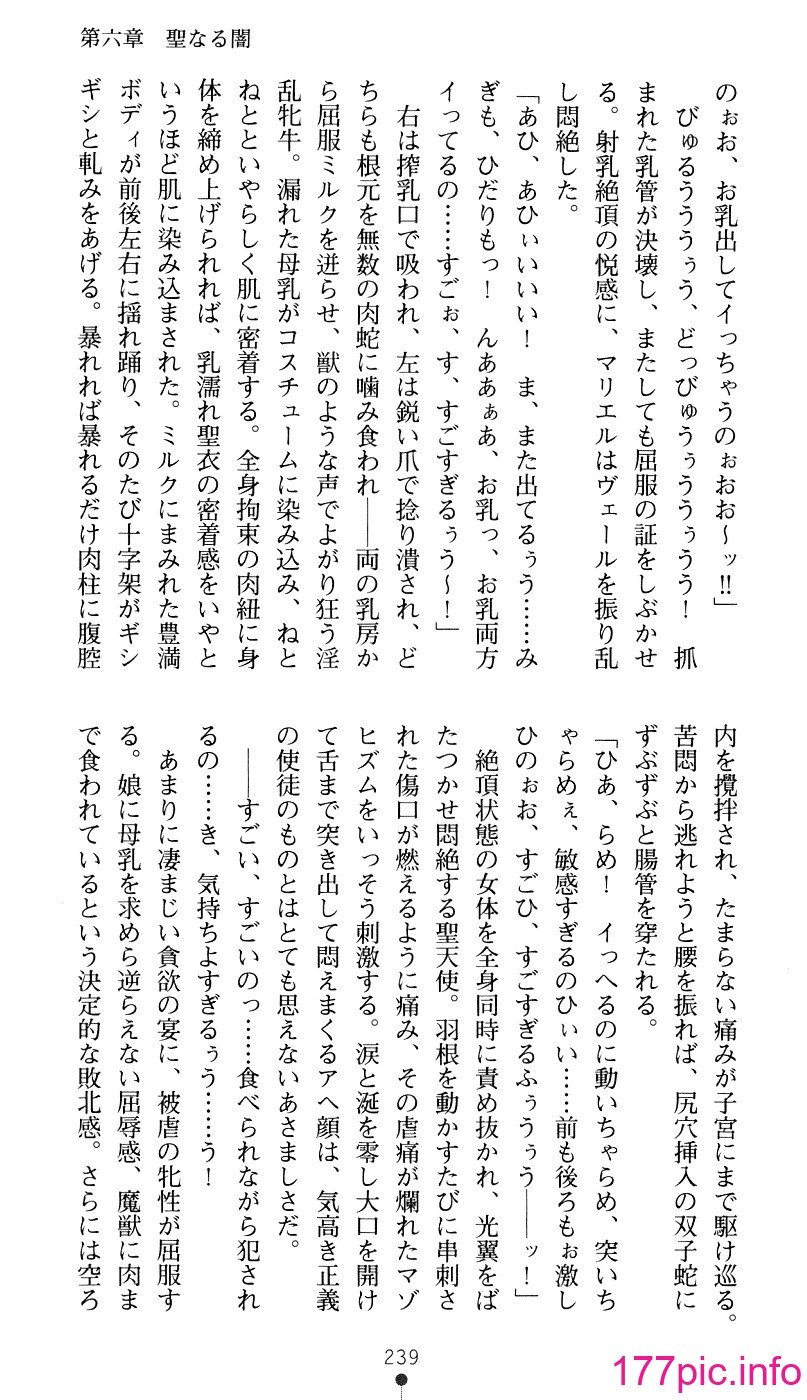 第六章　聖なる闇
のぉお、お乳出してイっちゃうのぉおお〜ッ‼」
　びゅるうううぅう、どっびゅうぅううぅうう！　抓
まれた乳管が決壊し、またしても屈服の証をしぶかせ
る。射乳絶頂の悦感に、マリエルはヴェールを振り乱
し悶絶した。
「あひ、あひぃいいい！　ま、また出てるぅう……み
ぎも、ひだりもっ！　んああぁあ、お乳っ、お乳両方
イってるの……すごぉ、す、すごすぎるぅう〜！」
　右は搾乳口で吸われ、左は鋭い爪で捻り潰され、ど
ちらも根元を無数の肉蛇に噛み食われ――両の乳房か
ら屈服ミルクを迸らせ、獣のような声でよがり狂う淫
乱牝牛。漏れた母乳がコスチュームに染み込み、ねと
ねとといやらしく肌に密着する。全身拘束の肉紐に身
体を締め上げられれば、乳濡れ聖衣の密着感をいやと
いうほど肌に染み込まされた。ミルクにまみれた豊満
ボディが前後左右に揺れ踊り、そのたび十字架がギシ
ギシと軋みをあげる。暴れれば暴れるだけ肉柱に腹腔
内を攪拌され、たまらない痛みが子宮にまで駆け巡る。
苦悶から逃れようと腰を振れば、尻穴挿入の双子蛇に
ずぶずぶと腸管を穿たれる。
「ひあ、らめ！　イっへるのに動いちゃらめ、突いち
ゃらめぇ、敏感すぎるのひぃい……前も後ろもぉ激し
ひのぉお、すごひ、すごすぎるふぅうぅう――ッ！」
　絶頂状態の女体を全身同時に責め抜かれ、光翼をば
たつかせ悶絶する聖天使。羽根を動かすたびに串刺さ
れた傷口が燃えるように痛み、その虐痛が爛れたマゾ
ヒズムをいっそう刺激する。涙と涎を零し大口を開け
て舌まで突き出して悶えまくるアヘ顔は、気高き正義
の使徒のものとはとても思えないあさましさだ。
　――すごい、すごいのっ……食べられながら犯され
るの……き、気持ちよすぎるぅう……う！
　あまりに凄まじい貪欲の宴に、被虐の牝性が屈服す
る。娘に母乳を求めら逆らえない屈辱感、魔獣に肉ま
で食われているという決定的な敗北感。さらには空ろ
239
177pic.info